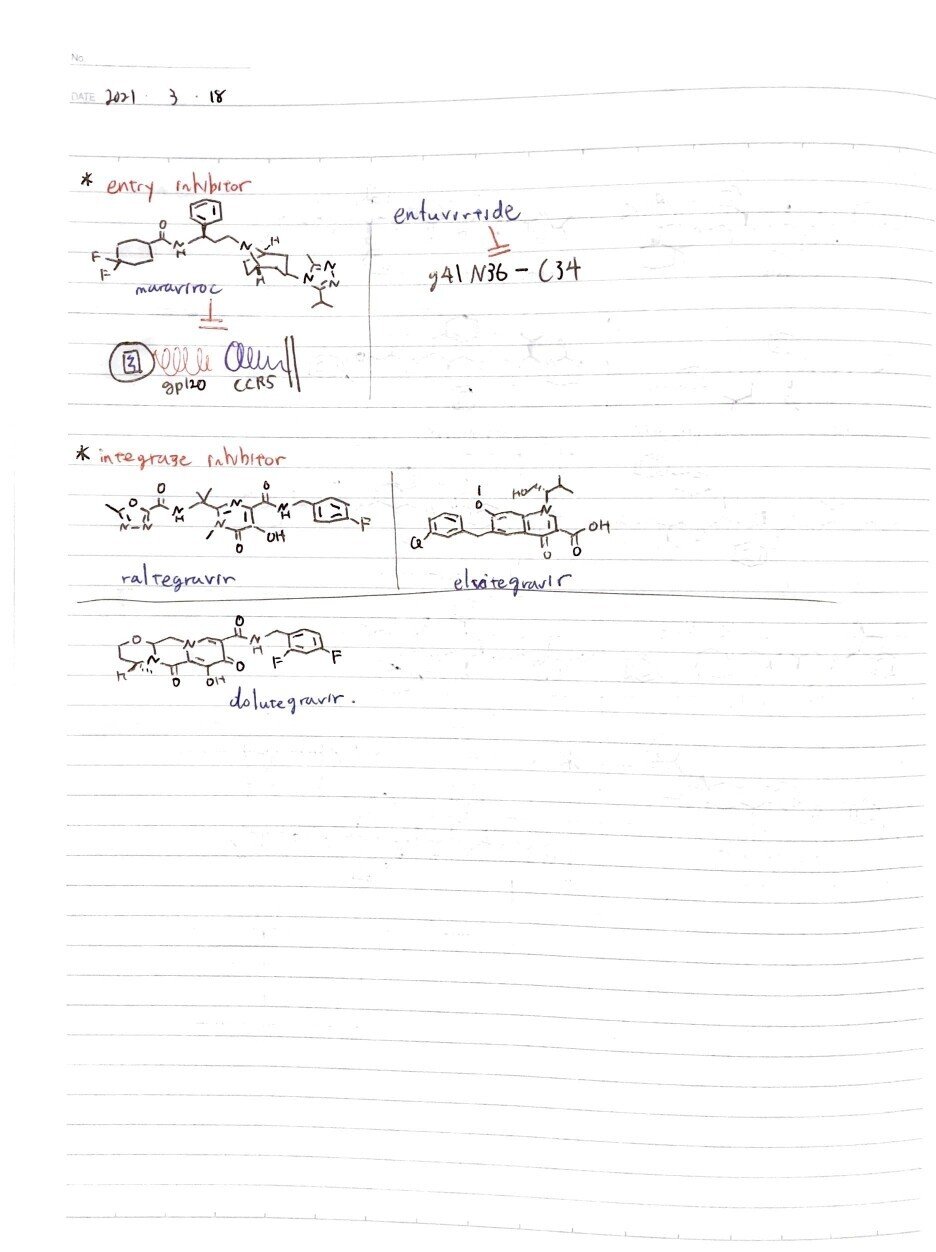 No
DATE 2021 . 3 . 18
* entry inhibitor
F
F
O
N
H
N
H
H
N
N
N
maraviroc
gp120 CCR5
enfuvirtide
g41 N36 - C34
* integrase inhibitor
O
N
N
O
N
H
N
N
O
O
N
H
OH
F
raltegravir
Cl
O
HO
N
O
O
OH
elvitegravir
O
N
H
N
O
OH
O
O
N
H
F
F
dolutegravir.